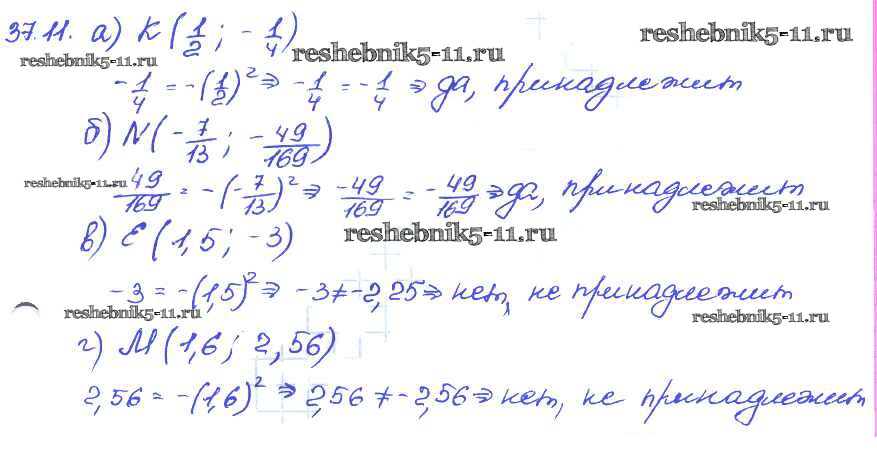 37.11. а) K (1/2 ; - 1/4)
reshebnik5-11.ru
reshebnik5-11.ru
reshebnik5-11.ru
- 1/4 = -(1/2)² ⇒ - 1/4 = - 1/4 ⇒ да, принадлежит
б) N (- 7/13 ; - 49/169)
reshebnik5-11.ru
- 49/169 = -(- 7/13)² ⇒ -49/169 = - 49/169 ⇒ да, принадлежит
reshebnik5-11.ru
в) E (1,5 ; -3)
reshebnik5-11.ru
-3 = -(1,5)² ⇒ -3 ≠ -2,25 ⇒ нет, не принадлежит
reshebnik5-11.ru
reshebnik5-11.ru
г) M (1,6 ; 2,56)
2,56 = -(1,6)² ⇒ 2,56 ≠ -2,56 ⇒ нет, не принадлежит